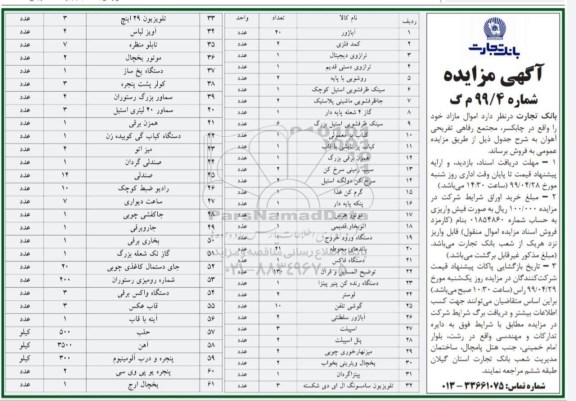 بانک تجارت
آگهی مزایده
شماره ۹۹/۴ م ک
بانک تجارت درنظر دارد اموال مازاد خود
را واقع در چابکسر، مجتمع رفاهی تفریحی
آهوان به شرح جدول ذیل از طریق مزایده
عمومی به فروش برساند.
۱ – مهلت دریافت اسناد، بازدید، و ارایه
پیشنهاد قیمت تا پایان وقت اداری روز شنبه
مورخ ۹۹/۰۴/۲۸ (ساعت ۱۴:۳۰ می‌باشد.)
۲ – مبلغ خرید اوراق شرایط شرکت در
مزایده ۱۰۰/۰۰۰ ریال به صورت فیش واریزی
به حساب شماره ۰۱۸۵۴۸۶۰ بنام (کارمزد
فروش اسناد مزایده اموال منقول) قابل واریز
نزد هریک از شعب بانک تجارت می‌باشد.
(مبلغ مذکور غیرقابل برگشت می‌باشد.)
۳ – تاریخ بازگشایی پاکات پیشنهاد قیمت
شرکت‌کنندگان در مزایده روز یکشنبه مورخ
۹۹/۰۴/۲۹ راس (ساعت ۱۰:۳۰ صبح می‌باشد.)
براین اساس متقاضیان می‌توانند جهت کسب
اطلاعات بیشتر و دریافت برگ شرایط شرکت
در مزایده مطابق با شرایط فوق به دایره
تدارکات و مهندسی واقع در رشت، بلوار
امام خمینی، جنب هتل پامچال، ساختمان
مدیریت شعب بانک تجارت استان گیلان
طبقه ششم مراجعه نمایند.
شماره تماس: ۳۳۶۶۱۰۷۵-۰۱۳
ردیف نام کالا تعداد واحد
۱ آباژور ۴۰ عدد
۲ کمد فلزی ۲ عدد
۳ ترازوی دیجیتال ۱ عدد
۴ ترازوی دستی قدیم ۱ عدد
۵ روشویی با پایه ۲ عدد
۶ سینک ظرفشویی استیل کوچک ۱ عدد
۷ جاظرفشویی ماشینی پلاستیک ۲ عدد
۸ گاز ۴ شعله پایه دار ۱ عدد
۹ سینک ظرفشویی استیل بزرگ عدد
۱۰ عدد
۱۱ عدد
۱۲ همزن برقی بزرگ ۱ عدد
۱۳ سیب زمینی سرخ کن عدد
۱۴ عدد
۱۵ گرم کن غذا عدد
۱۶ پنکه پایه دار ۱ عدد
۱۷ عدد
۱۸ اتوبخار قدیمی عدد
۱۹ دستگاه ورود خروج عدد
۲۰ باندهای محوطه عدد
۲۱ دستگاه فاکس عدد
۲۲ توضیح المسایل و قرآن ۱۳ عدد
۲۳ دستگاه رنده کن پنیر پیتزا ۱ عدد
۲۴ لوستر ۴ عدد
۲۵ گوشی تلفن ۱۰ عدد
۲۶ آباژور سلطنتی ۲ عدد
۲۷ اسپیلت ۳ عدد
۲۸ پنل اسپیلت ۴ عدد
۲۹ میزنهارخوری چوبی ۴ عدد
۳۰ یخچال ویترینی یخساب ۱ عدد
۳۱ پیتزاگردان ۱ عدد
۳۲ تلفزیون سامسونگ ال ای دی شکسته ۳ عدد
۳۳ تلفزیون ۲۹ اینچ ۳ عدد
۳۴ آویز لباس ۴ عدد
۳۵ تابلو منظره ۷ عدد
۳۶ موتور یخچال ۲ عدد
۳۷ دستگاه یخ ساز ۱ عدد
۳۸ کولر پشت پنجره ۳ عدد
۳۹ سماور بزرگ رستوران ۴ عدد
۴۰ سماور ۲۰ لیتری استیل ۳ عدد
۴۱ همزن برقی ۱ عدد
دستگاه کباب گی کوبیده زن عدد
میز اتو عدد
۴۴ صندلی گردان عدد
۴۵ صندلی ۱۴ عدد
۴۶ رادیو ضبط کوچک ۱۰ عدد
۴۷ ساعت دیواری ۷ عدد
۴۸ جاکفشی چوبی ۱ عدد
۴۹ جاروبرقی ۱ عدد
۵۰ بخاری برقی ۱ عدد
۵۱ گاز تک شعله بزرگ ۱ عدد
۵۲ جای دستمال کاغذی چوبی ۴۰ عدد
۵۳ شماره رومیزی رستوران ۴۰۰ عدد
۵۴ دستگاه واکس برقی ۳ عدد
۵۵ قاب عکس ۳ عدد
۵۶ آینه با قاب ۱ عدد
۵۷ حلب ۵۰۰ کیلو
۵۸ آهن ۳۵۰۰ کیلو
۵۹ پنجره و درب آلومینیوم ۳۰۰ کیلو
۶۰ پنجره یو پی وی سی ۲ عدد
۶۱ یخچال ارج ۱ عدد
ParsNamadData
پایگاه اطلاع رسانی مناقصه و مزایده